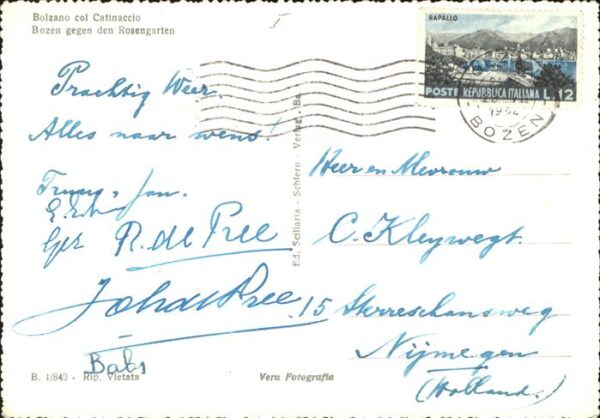 Bolzano col Catinaccio
Bozen gegen den Rosengarten
I
RAPALLO
POSTE REPUBBLICA ITALIANA L.12
BOZEN
Prachtig Weer.
Alles naar wens!
Jan.
R. de Pree
Joh de Pree
Babs
Ed. Sciliaria - Schlern - Verlag - Bz.
Heer en Mevrouw
C. Kleywegt.
15 Sterreschansweg
Nijmegen
(Holland.)
B. 1/840 - Rip. Vietata
Vera Fotografia